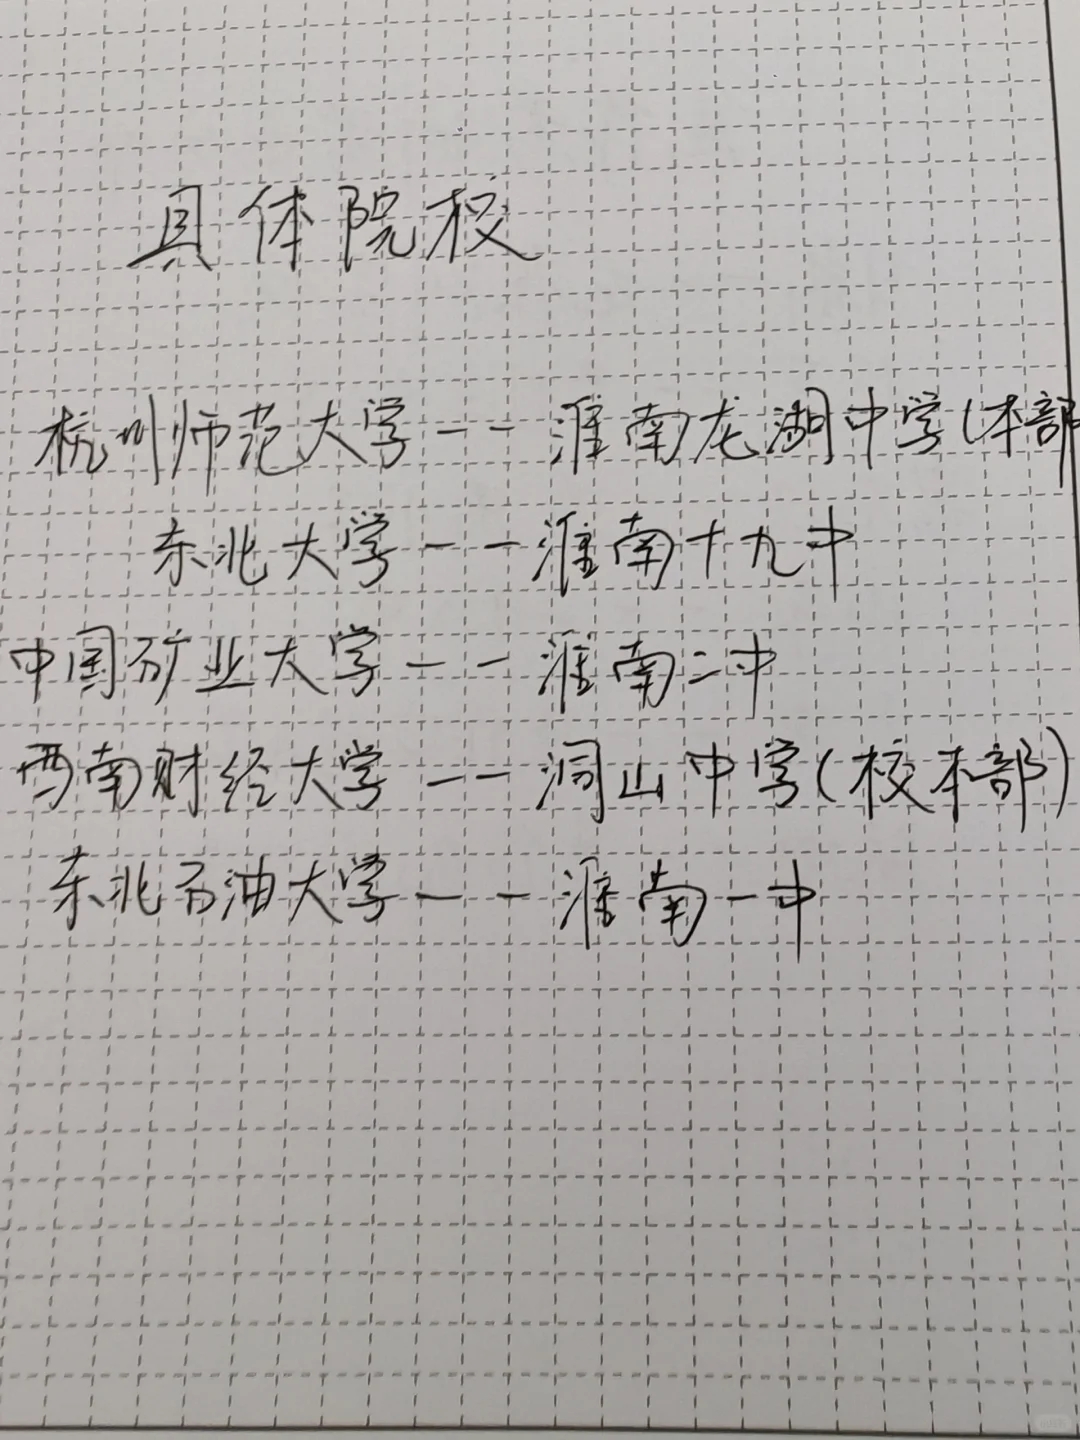 具体院校
杭州师范大学——淮南龙湖中学(本部
东北大学——淮南十九中
中国矿业大学——淮南二中
西南财经大学——洞山中学(校本部)
东北石油大学——淮南一中